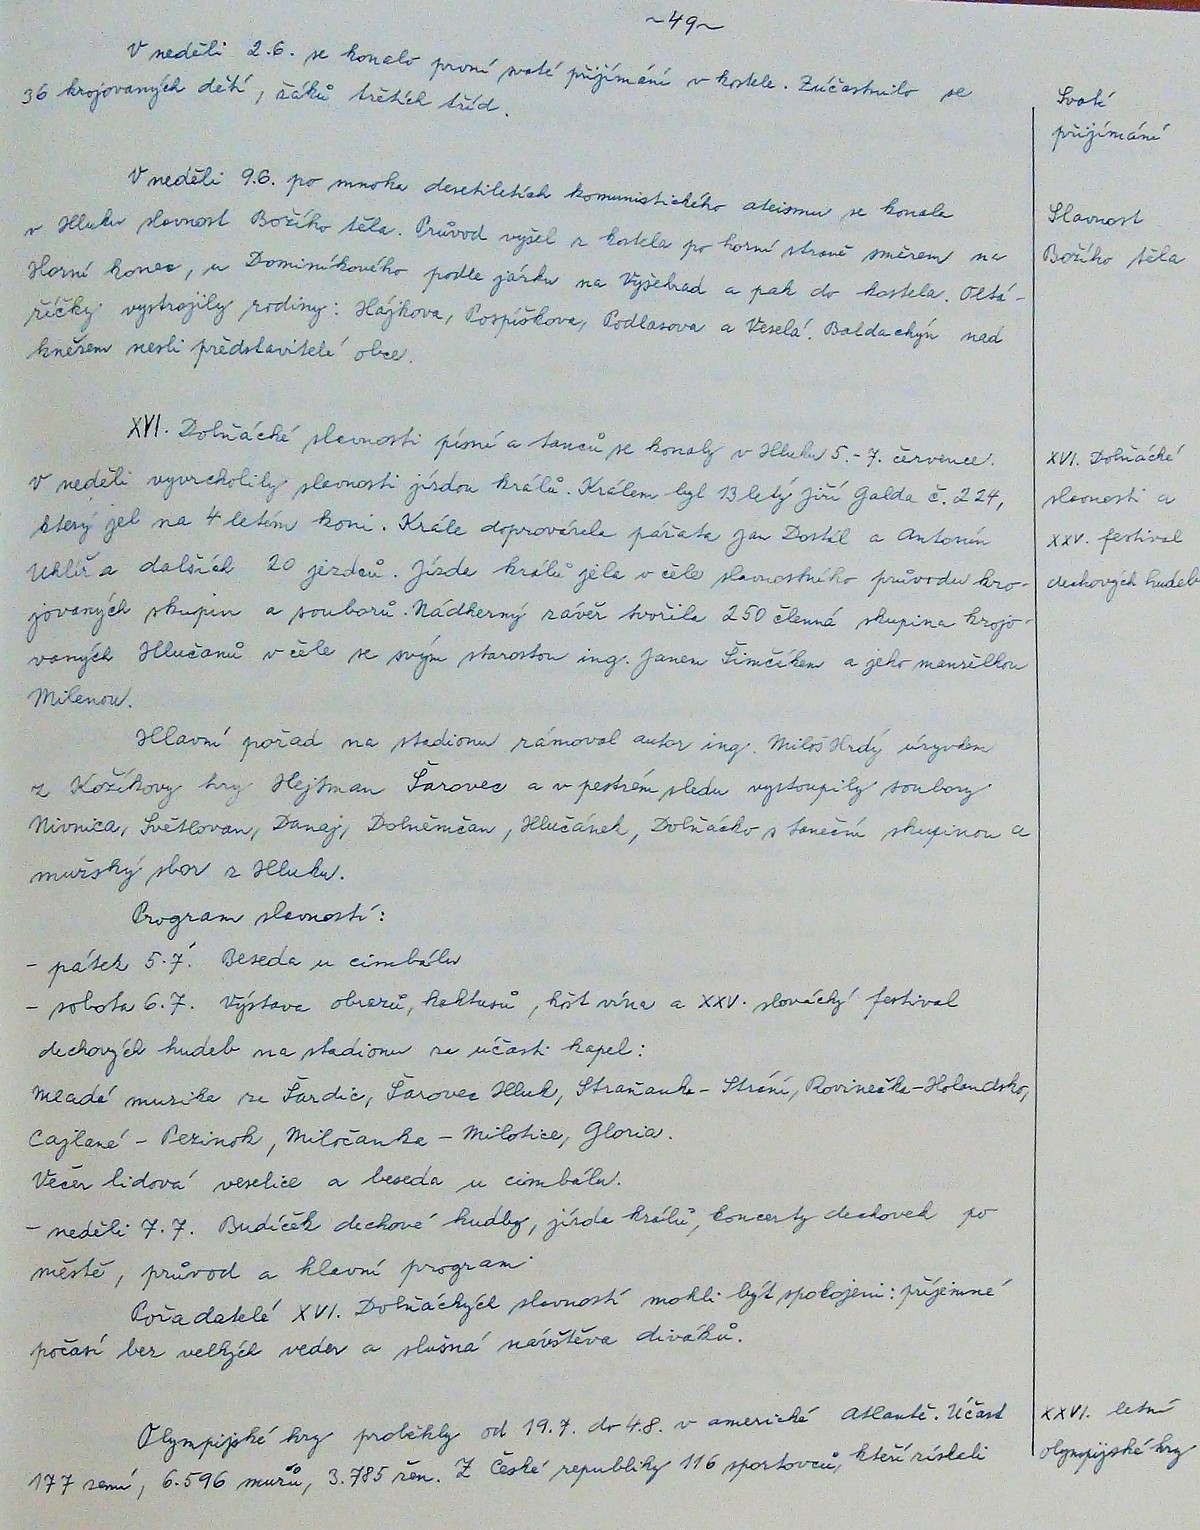 ~49~
V neděli 2.6. se konalo první svaté přijímání v kostele. Zúčastnilo se
36 krojovaných dětí, žáků třetích tříd.
Svaté
přijímání
V neděli 9.6. po mnoha desetiletích komunistického ateismu se konala
v Hluku slavnost Božího těla. Průvod vyšel z kostela po horní straně směrem na
Horní konec, u Dominikového podle járku na Vyšehrad a pak do kostela. Oltá-
říčky vystrojily rodiny: Hájkova, Pospíškova, Podlasova a Veselá. Baldachýn nad
knězem nesli představitelé obce.
Slavnost
Božího těla
XVI. Dolňácké slavnosti písní a tanců se konaly v Hluku 5.-7. července.
V neděli vyvrcholily slavnosti jízdou králů. Králem byl 13letý Jiří Galda č. 224,
který jel na 4letém koni. Krále doprovázela páňata Jan Dostál a Antonín
Uhlíř a dalších 20 jezdců. Jízda králů jela v čele slavnostního průvodu kro-
jovaných skupin a souborů. Nádherný závěr tvořila 250členná skupina krojo-
vaných Hlučanů v čele se svým starostou ing. Janem Šimčíkem a jeho manželkou
Milenou.
XVI. Dolňácké
slavnosti a
XXV. festival
dechových hudeb
Hlavní pořad na stadionu rámoval autor ing. Miloš Hrdý úryvkem
z Kožíkovy hry Hejtman Šarovec a v pestrém sledu vystoupily soubory
Nivnica, Světlovan, Danaj, Dolněmčan, Hlučánek, Dolňácko s taneční skupinou a
mužský sbor z Hluku.
Program slavností:
- pátek 5.7. Beseda u cimbálu
- sobota 6.7. Výstava obrazů, kaktusů, košt vína a XXV. slovácký festival
dechových hudeb na stadionu za účasti kapel:
Mladá muzika ze Šardic, Šarovec Hluk, Straňanka - Strání, Rovinečka - Holandsko,
Cajlané - Pezinok, Miločanka - Milotice, Gloria.
Večer lidová veselice a beseda u cimbálu.
- neděli 7.7. Budíček dechové hudby, jízda králů, koncerty dechovek po
městě, průvod a hlavní program
Pořadatelé XVI. Dolňáckých slavností mohli být spokojeni: příjemné
počasí bez velkých veder a slušná návštěva diváků.
Olympijské hry proběhly od 19.7. do 4.8. v americké Atlantě. Účast
177 zemí, 6.596 mužů, 3.785 žen. Z České republiky 116 sportovců, kteří získali
XXVI. letní
olympijské hry